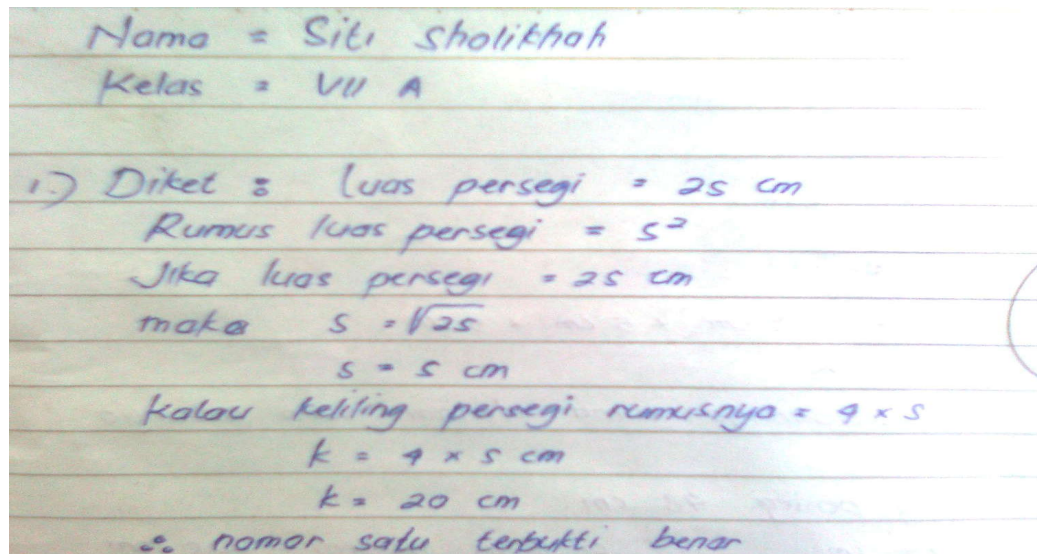 Nama = Siti Sholikhah
Kelas = VII A
1.) Diket : luas persegi = 25 cm
Rumus luas persegi = s²
Jika luas persegi = 25 cm
maka s = √25
s = 5 cm
Kalau keliling persegi rumusnya = 4 × s
k = 4 × 5 cm
k = 20 cm
∴ nomor satu terbukti benar